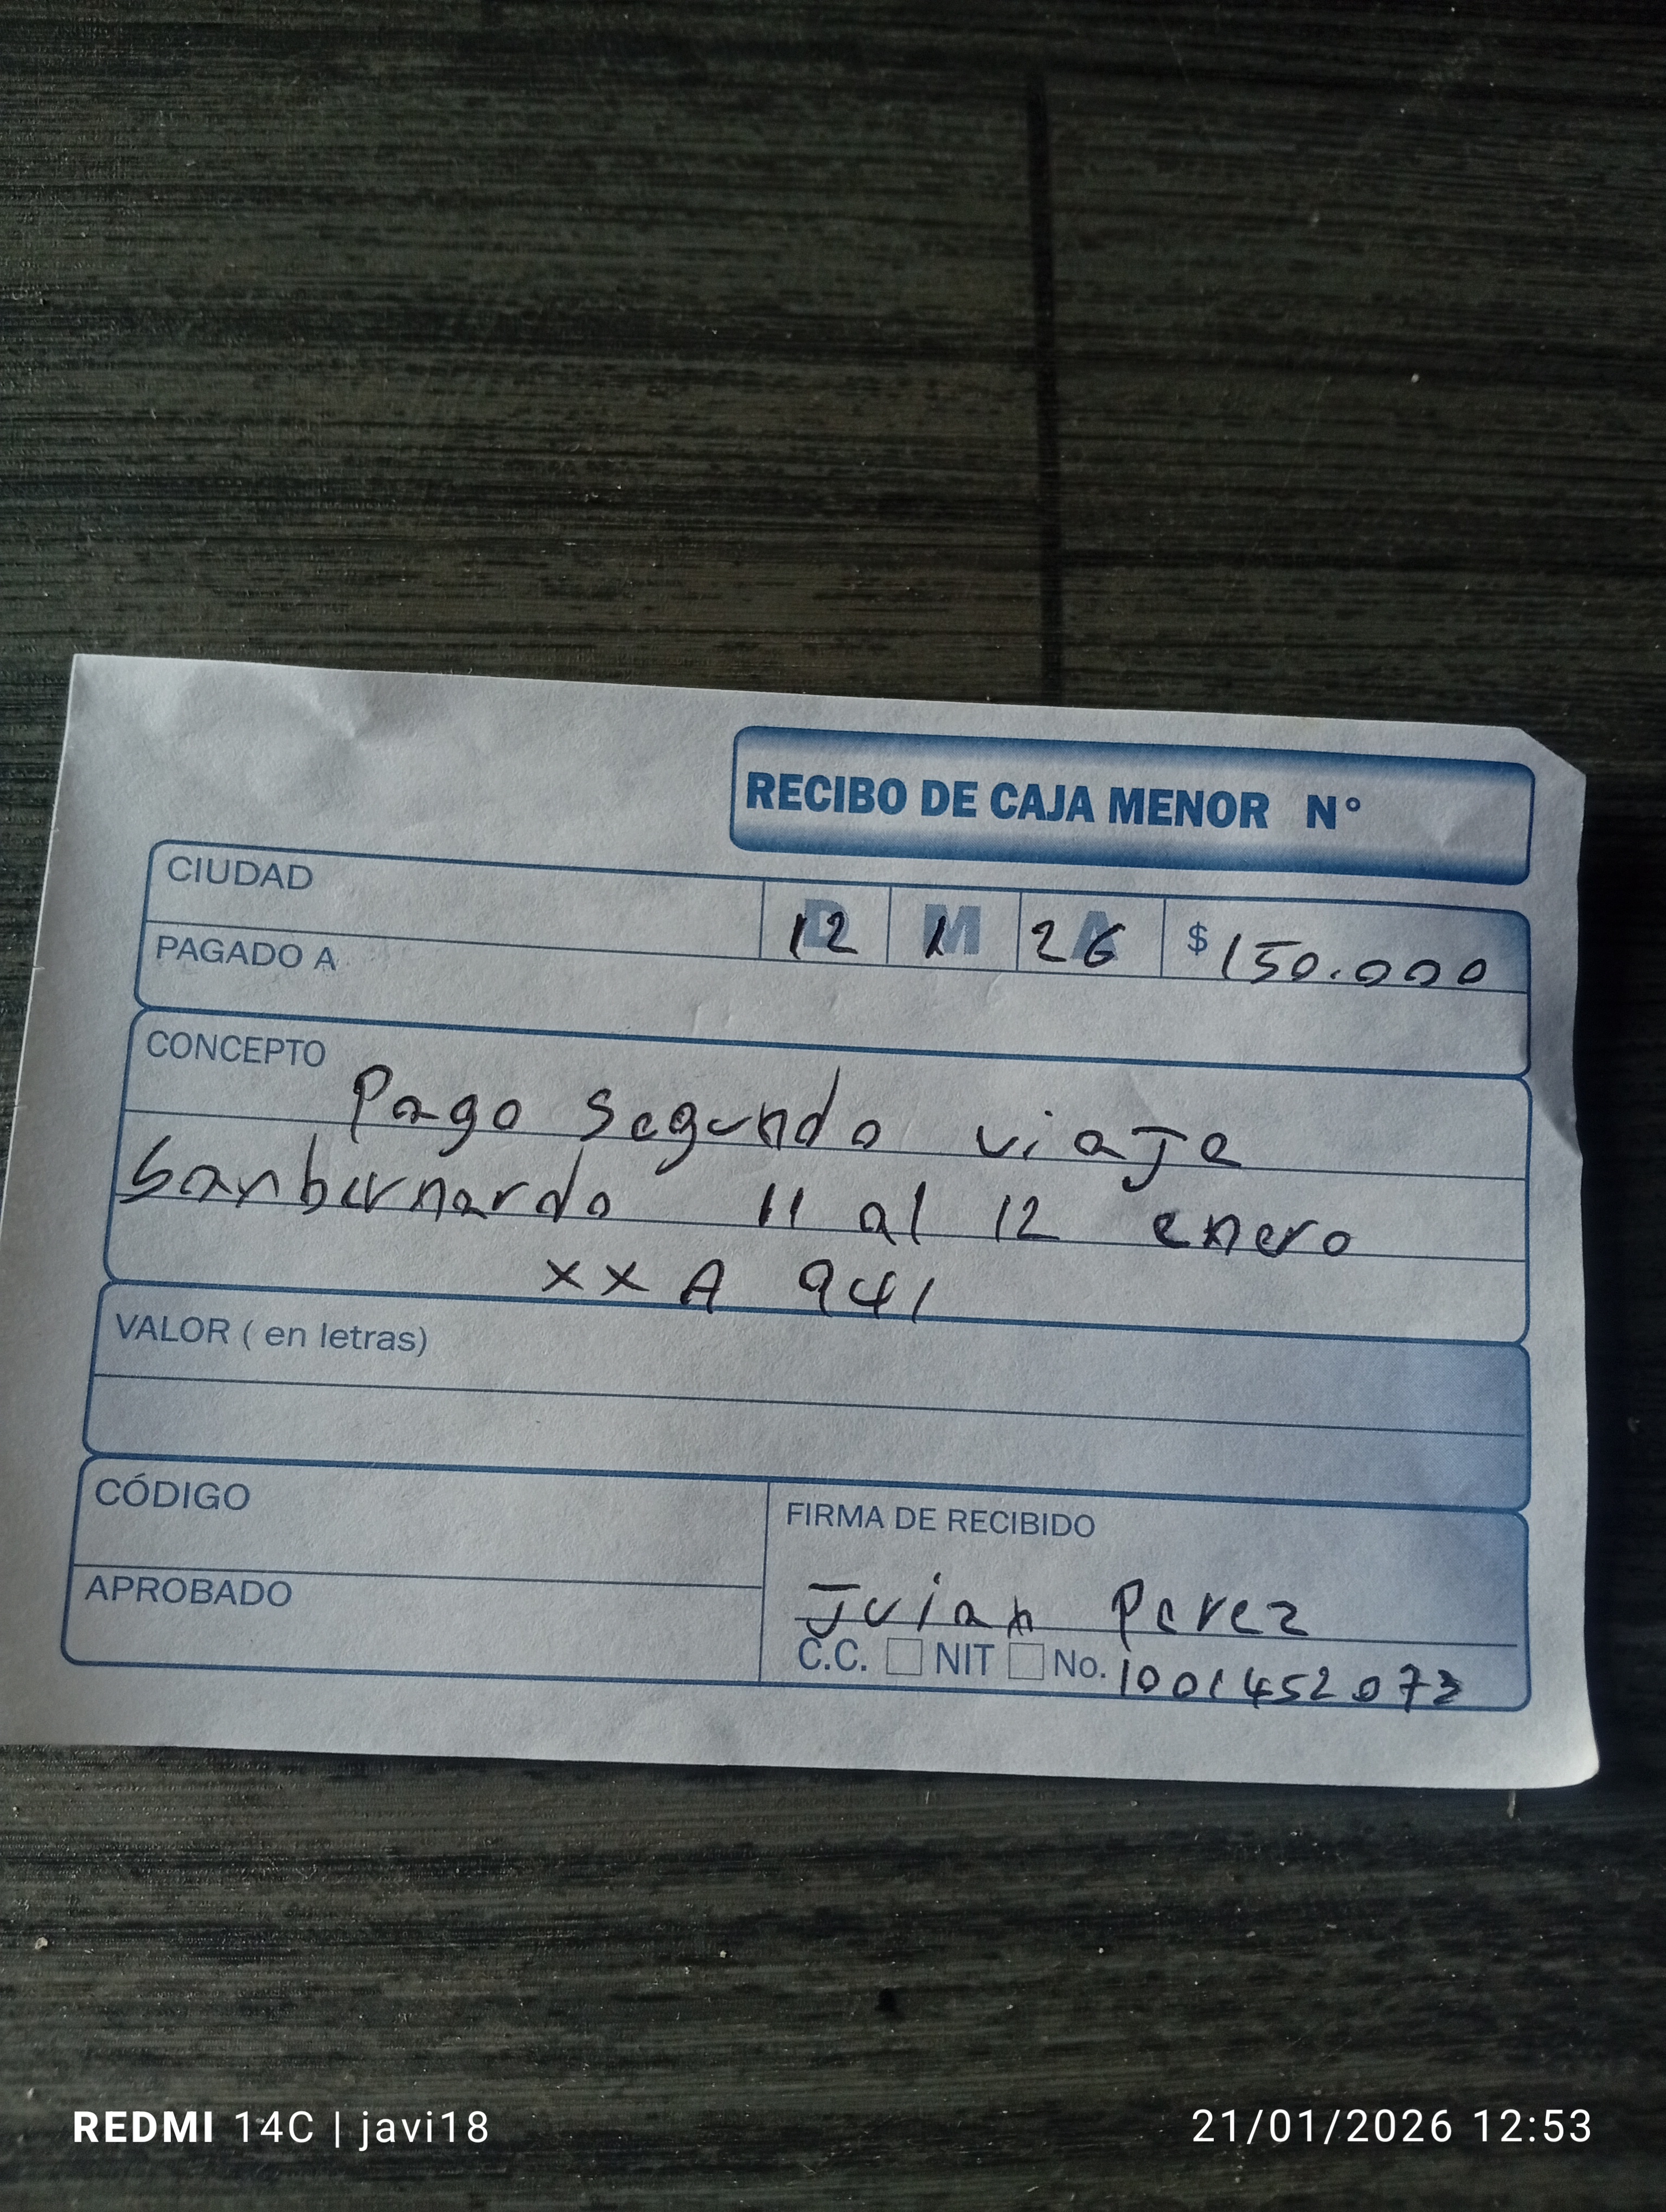 RECIBO DE CAJA MENOR N°
CIUDAD
D M A
12 1 26 $ 150.000
PAGADO A
CONCEPTO
Pago segundo viaje
sanbernardo 11 al 12 enero
XXA 941
VALOR ( en letras)
CÓDIGO
FIRMA DE RECIBIDO
APROBADO
Julian Perez
C.C. NIT No. 1001452073
REDMI 14C | javi18
21/01/2026 12:53